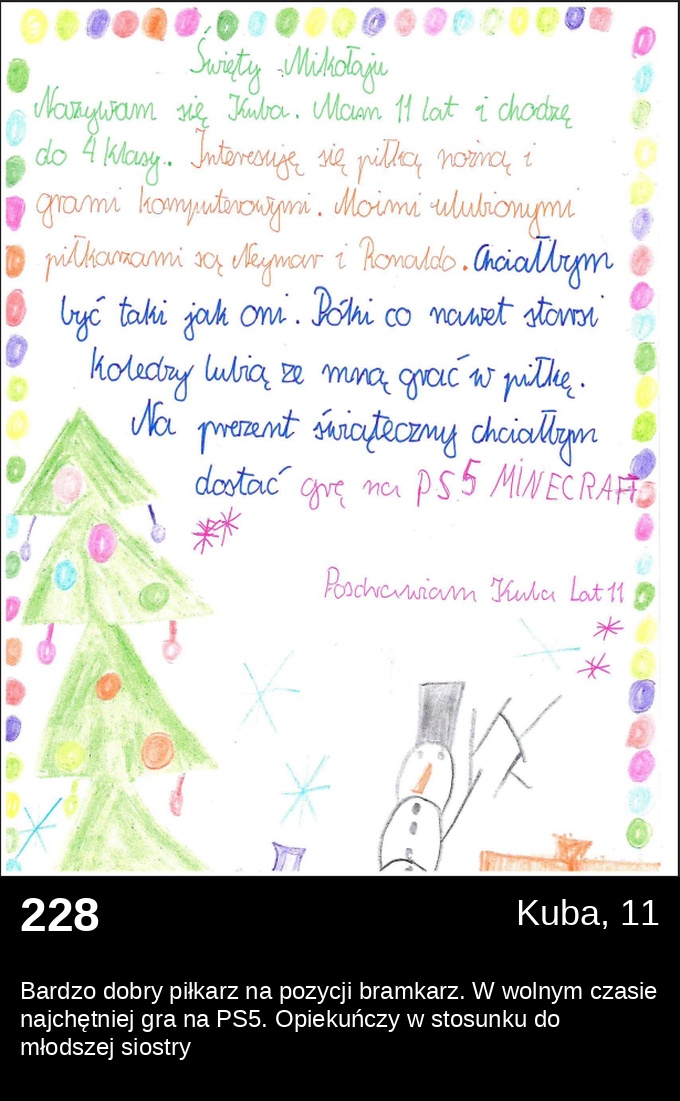 Święty Mikołaju
Nazywam się Kuba. Mam 11 lat i chodzę
do 4 klasy. Interesuję się piłką nożną i
grami komputerowymi. Moimi ulubionymi
piłkarzami są Neymar i Ronaldo. Chciałbym
być taki jak oni. Póki co nawet starsi
koledzy lubią ze mną grać w piłkę.
Na prezent świąteczny chciałbym
dostać grę na PS5 MINECRAFT
Pozdrawiam Kuba Lat 11
228
Kuba, 11
Bardzo dobry piłkarz na pozycji bramkarz. W wolnym czasie
najchętniej gra na PS5. Opiekuńczy w stosunku do
młodszej siostry